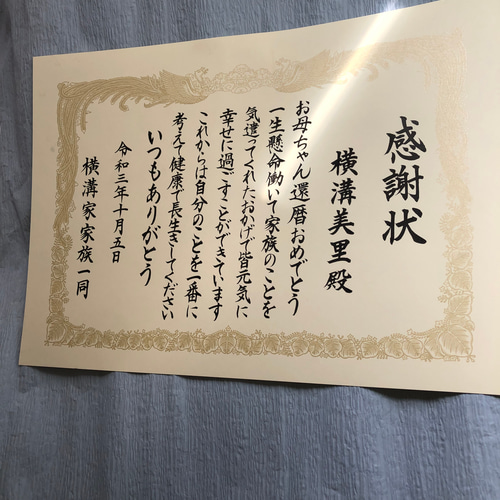 感謝状
横溝美里殿
お母ちゃん還暦おめでとう
一生懸命働いて家族のことを
気遣ってくれたおかげで皆元気に
幸せに過ごすことができています
これからは自分のことを一番に
考えて健康で長生きしてください
いつもありがとう
令和三年十月五日
横溝家家族一同